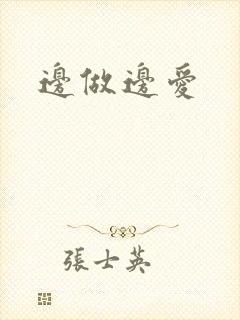 邊做邊愛
張士英